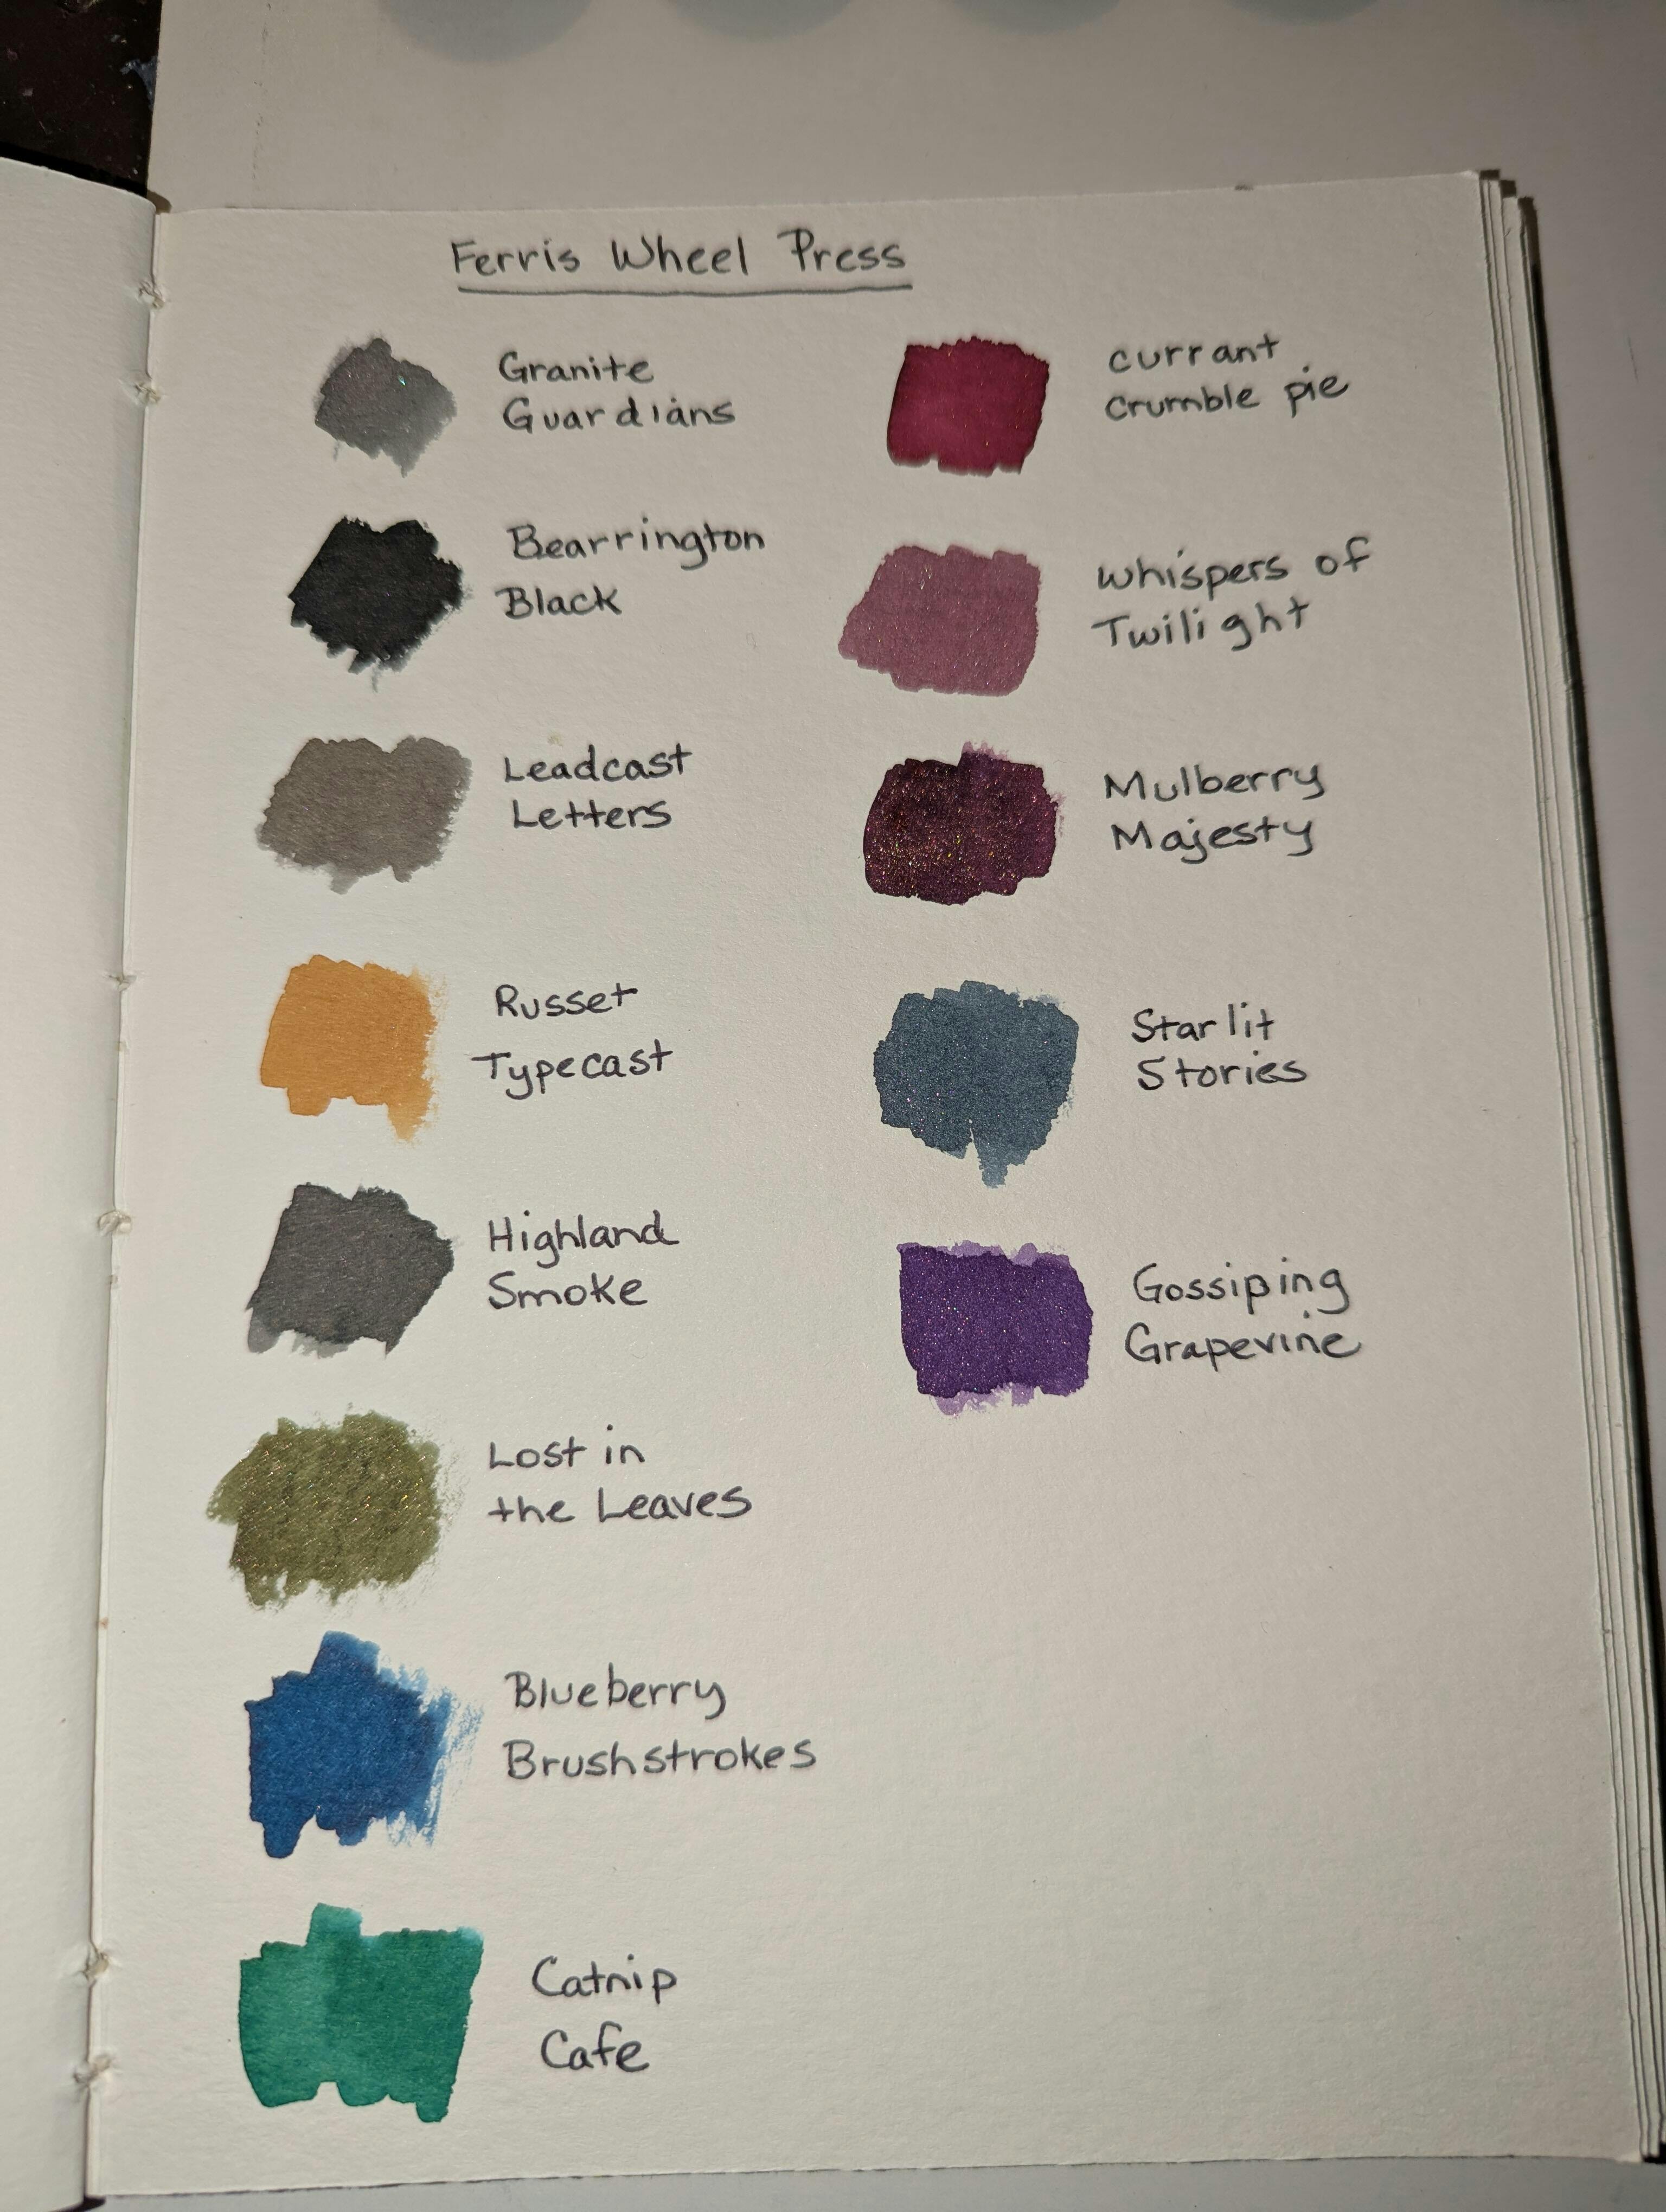 Ferris Wheel Press
Granite
Guardians
Bearrington
Black
Leadcast
Letters
Russet
Typecast
Highland
Smoke
Lost in
the Leaves
Blueberry
Brushstrokes
Catnip
Cafe
currant
crumble pie
Whispers of
Twilight
Mulberry
Majesty
Starlit
Stories
Gossiping
Grapevine